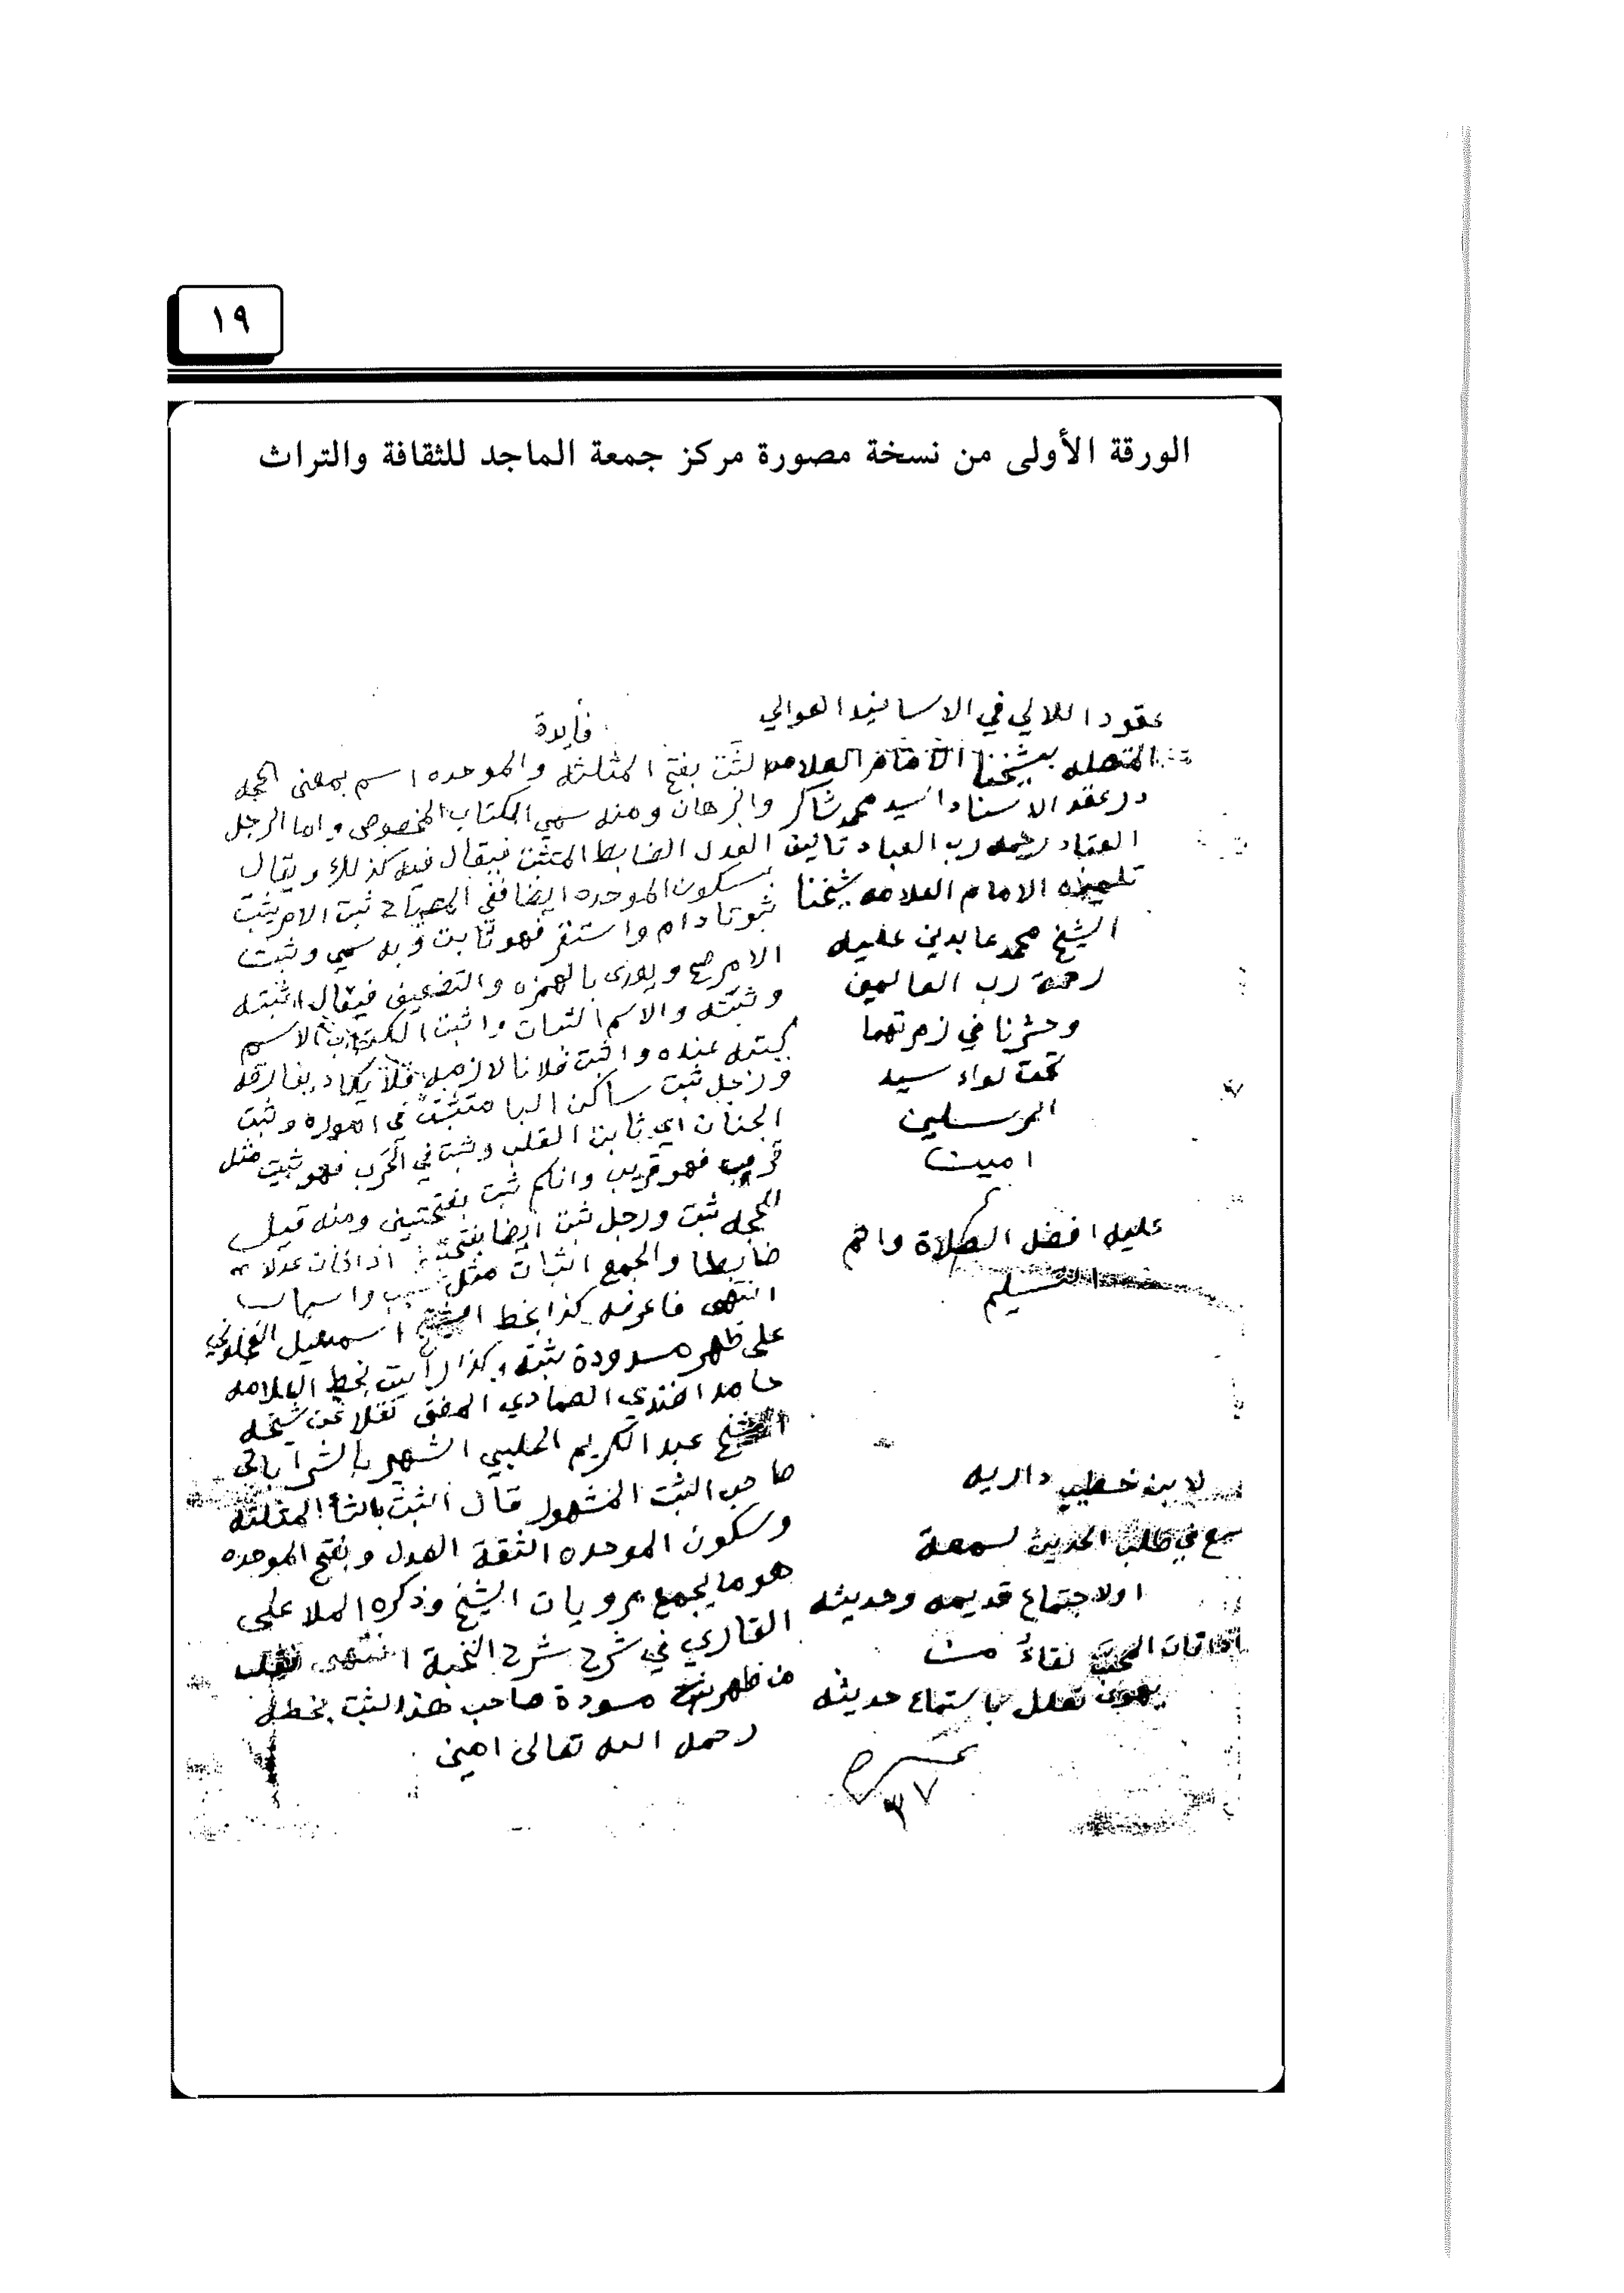 ١٩
الورقة الأولى من نسخة مصورة مركز جمعة الماجد للثقافة والتراث
عقود اللالي في الاسانيد العوالي
المتصله بشيخنا الامام العلامه
در عقد الاسناد السيد محمد شاكر
العقاد رحمه رب العباد تاليف
تلميذه الامام العلامه شيخنا
الشيخ محمد عابدين عليه
رحمة رب العالمين
وحشرنا في زمرتهما
تحت لواء سيد
المرسلين
امين
عليه افضل الصلاة واتم
التسليم
لابن خطيب داريه
في طلب الحديث لسمعة
اولاجتماع قديمه وحديثه
لقاء من
يهوى تعلل باستماع حديثه
فايدة
الثبت بفتح المثلثه والموحده اسم بمعنى الحجه
والبرهان ومنه سمي الكتاب المخصوص واما الرجل
العدل الضابط المتثبت فيقال فيه كذلك ويقال
بسكون الموحده ايضا ففي المصباح ثبت الامر يثبت
ثبوتا دام واستقر فهو ثابت وبه سمي وثبت
الامر صح ويعدى بالهمزه والتضعيف فيقال اثبته
وثبته والاسم الثبات واثبت الكاتب الاسم
كتبه عنده واثبت فلانا لازمه فلا يكاد يفارقه
ورجل ثبت ساكن البا متثبت في اموره وثبت
الجنان اي ثابت القلب وثبت في الحرب فهو ثبيت مثل
قرب فهو قريب والحكم ثبت بفتحتين ومنه قيل
للحجه ثبت ورجل ثبت ايضا بفتحتين اذا كان عدلا
ضابطا والجمع اثبات مثل سبب واسباب
انتهى فاعرفه كذا بخط الشيخ اسمعيل العجلوني
على ظهر مسودة ثبته وكذا رأيت بخط العلامه
حامد افندي العمادي المفتي نقلا عن شيخه
الشيخ عبد الكريم الحلبي الشهير بالشراباتي
صاحب الثبت المشهور قال الثبت بالثا المثلثه
وسكون الموحده الثقة العدل وبفتح الموحده
هو ما يجمع مرويات الشيخ وذكره الملا علي
القاري في شرح شرح النخبة انتهى
من ظهر مسودة صاحب هذا الثبت بخطه
رحمه الله تعالى امين